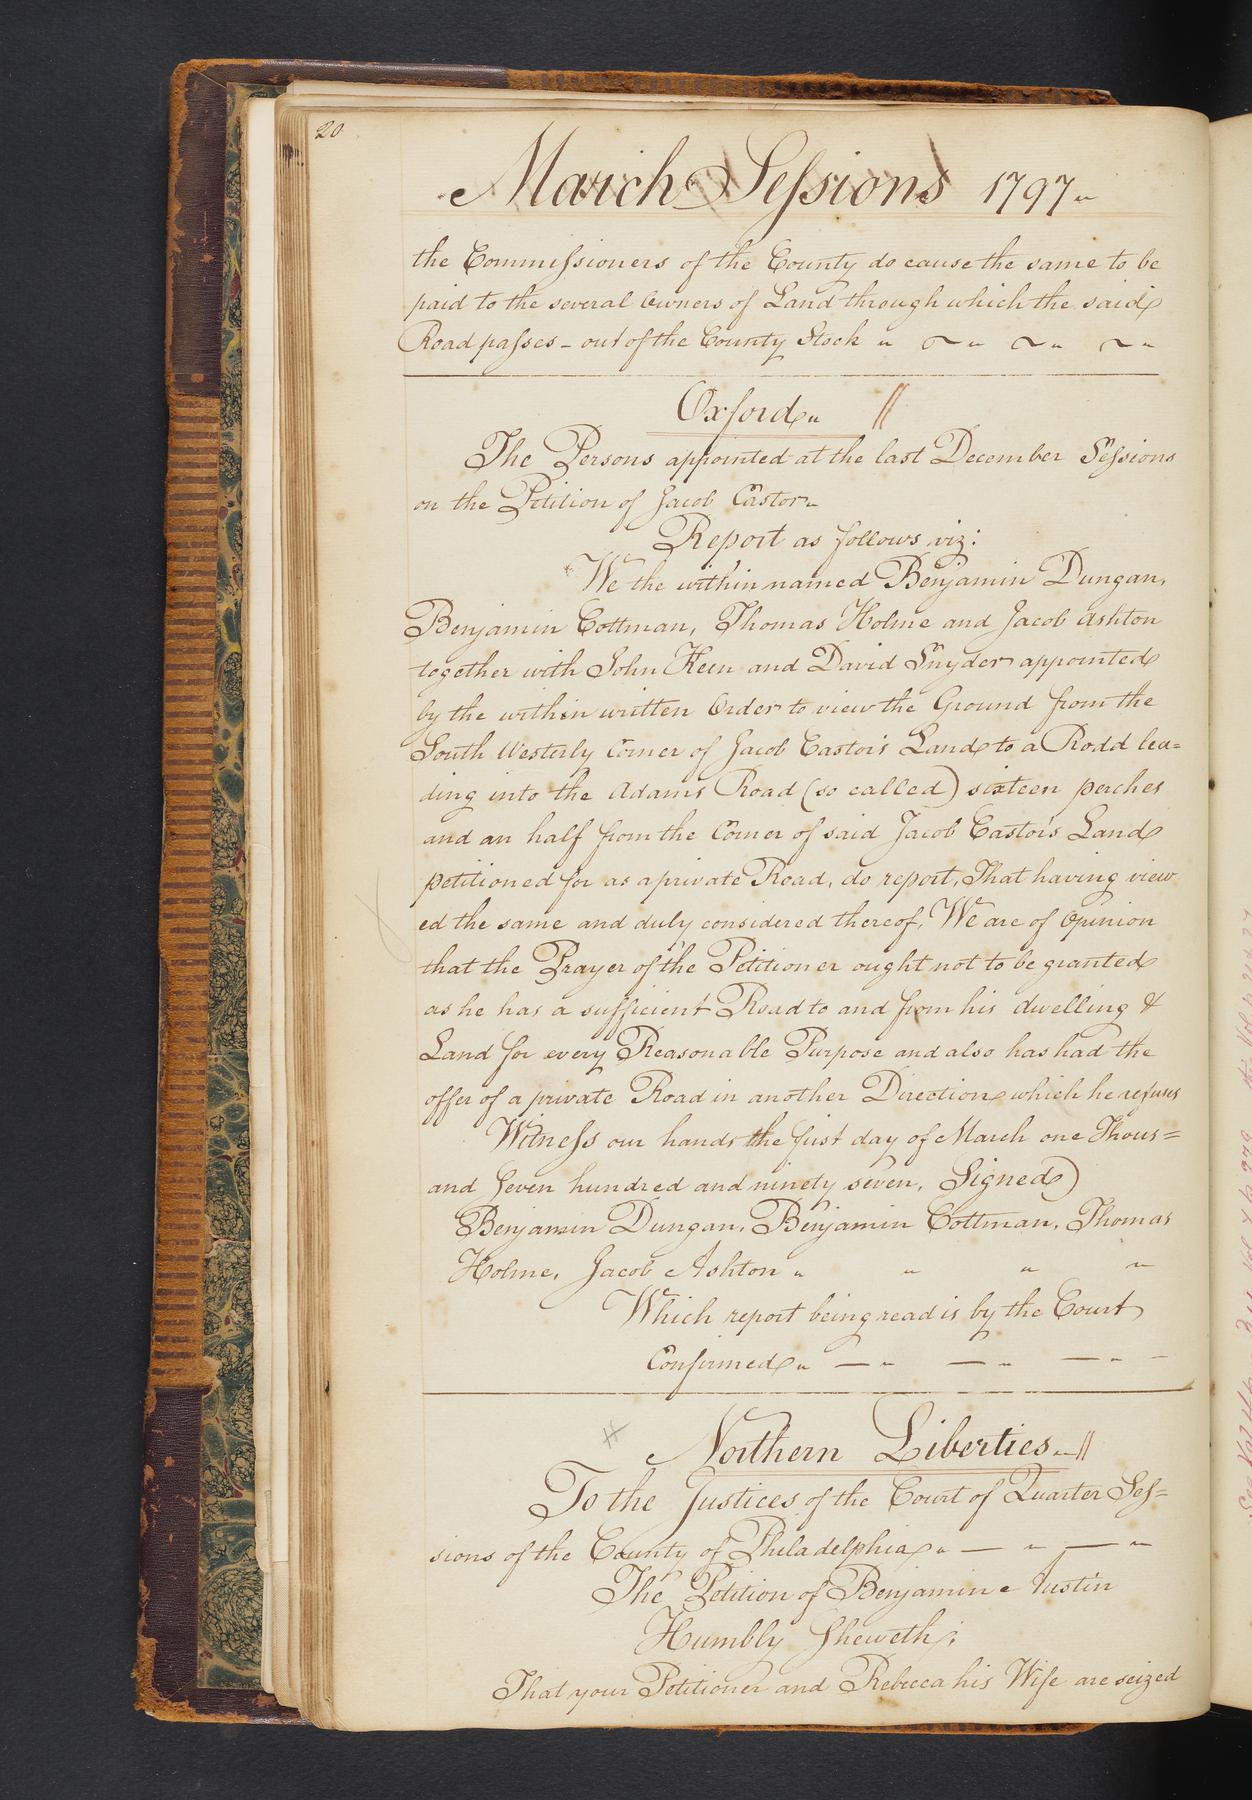 20
March Sessions 1797
the Commissioners of the County do cause the same to be
paid to the several Owners of Land through which the said
Road passes - out of the County Stock
Oxford
The Persons appointed at the last December Sessions
on the Petition of Jacob Castor
Report as follows viz:
We the within named Benjamin Dungan,
Benjamin Cottman, Thomas Holme and Jacob Ashton
together with John Keen and David Snyder appointed
by the within written Order to view the Ground from the
South Westerly Corner of Jacob Castor's Land to a Rodd lea=
ding into the Adams Road (so called) sixteen perches
and an half from the Corner of said Jacob Castor's Land
petitioned for as a private Road, do report, That having view
ed the same and duly considered thereof, We are of Opinion
that the Prayer of the Petitioner ought not to be granted
as he has a sufficient Road to and from his dwelling &
Land for every Reasonable Purpose and also has had the
offer of a private Road in another Direction which he refuses
Witness our hands the first day of March one Thous=
and Seven hundred and ninety seven, Signed)
Benjamin Dungan, Benjamin Cottman, Thomas
Holme, Jacob Ashton
Which report being read is by the Court
Confirmed
Northern Liberties
To the Justices of the Court of Quarter Ses=
sions of the County of Philadelphia
The Petition of Benjamin Austin
Humbly Sheweth;
That your Petitioner and Rebecca his Wife are seized